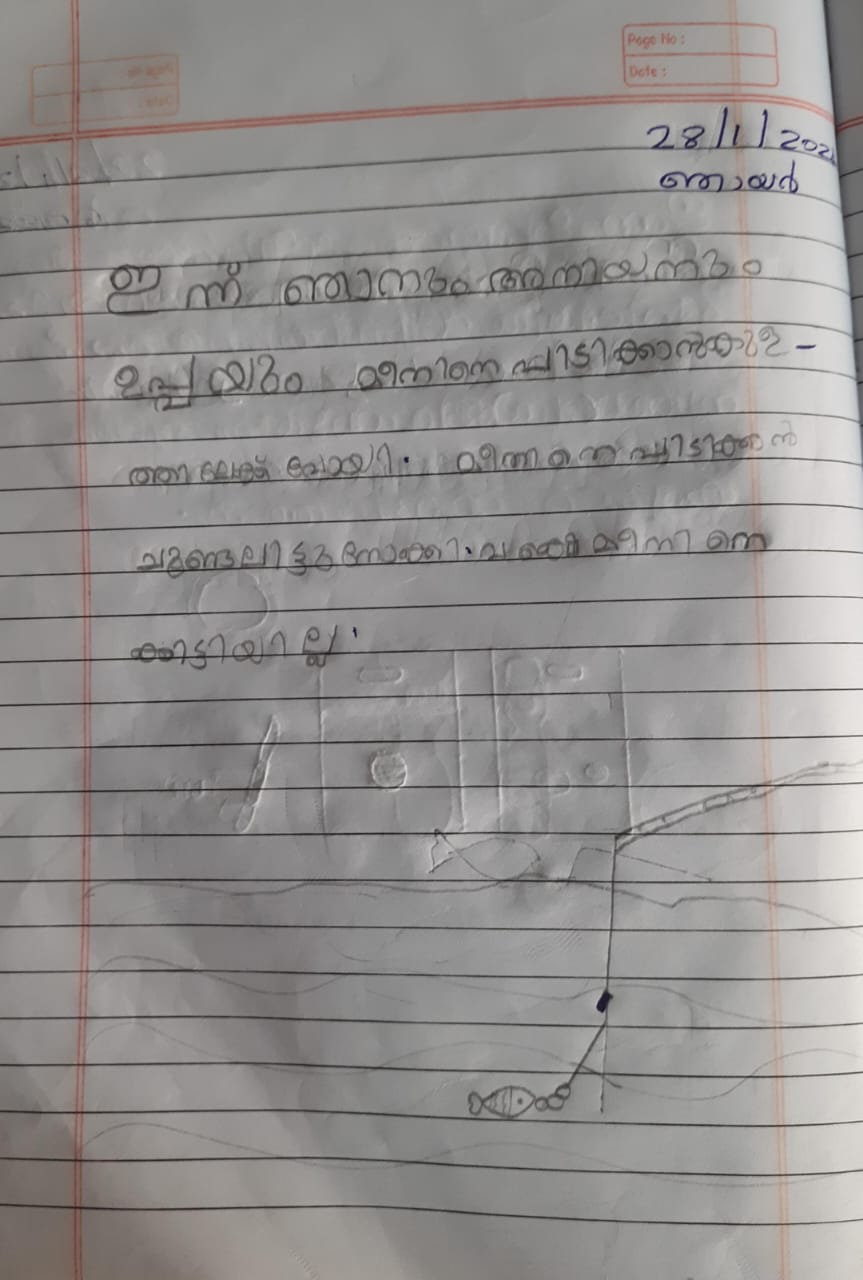 Page No :
Date :
28/1/202
ഞായർ
ഇന്ന് ഞാനും അനിയനും
ഉപ്പയും മീനിനെ പിടിക്കാൻ
പോയി. മീനിനെ പിടിക്കാൻ
ചൂണ്ടലിട്ടു നോക്കി. മീനിനെ
കിട്ടിയില്ല.